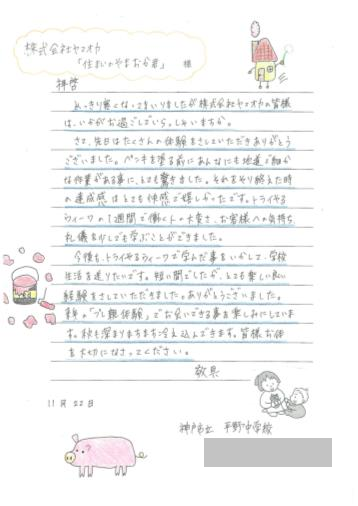 株式会社ヤマオカ
「住まいのやまおか君」 様
拝啓
めっきり寒くなってまいりましたが株式会社ヤマオカの皆様
は、いかがお過ごしでいらっしゃいますか。
さて、先日はたくさんの体験をさせていただきありがとう
ございました。ペンキを塗る前にあんなにも地道で細か
な作業がある事に、とても驚きました。それをやり終えた時
の達成感はとても快感で嬉しかったです。トライやる
ウィークの1週間で働く人の大変さ、お客様への気持ち、
礼儀を少しでも学ぶことができました。
今後も、トライやるウィークで学んだ事をいかして、学校
生活を送りたいです。短い間でしたが、とても楽しい良い
経験をさせていただきました。ありがとうございました。
来年の「プレ職体験」でお会いできる事を楽しみにしていま
す。秋も深まりますます冷え込んできます。皆様お体
を大切になさってください。
敬具
11月22日
神戸市立 平野中学校